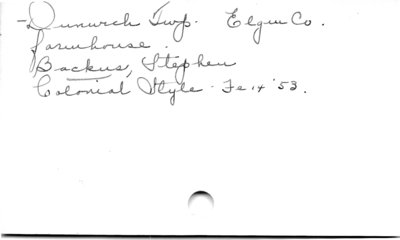 -Dunwich Twp. Elgin Co.
farmhouse.
Backus, Stephen
Colonial Style - Fe 14 '53.